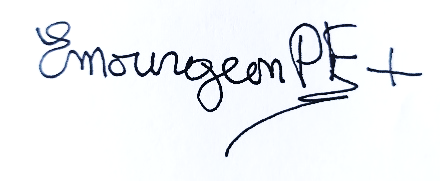 Emourgeon PE +